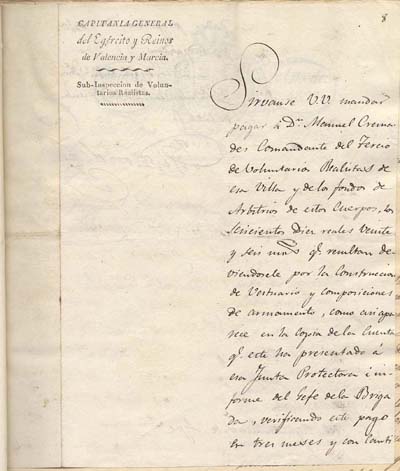 8
CAPITANIA GENERAL
del Egército y Reinos
de Valencia y Murcia.
Sub-Inspeccion de Volun-
tarios Realistas.
Sirvanse V.V. mandar
pagar á Dn. Manuel Crema
des Comandante del Tercio
de Voluntarios Realistas de
esa Villa y de los fondos de
Arbitrios de estos Cuerpos, los
Seiscientos Diez reales Veinte
y seis mrs. qe. resultan de-
viendosele por la Construccion
de Vestuario y composiciones
de armamento, como asi apa
rece en la Copia de la Cuenta
qe. este ha presentado á
esa Junta Protectora é in-
forme del Gefe de la Briga
da, verificando este pago
en tres meses y con canti